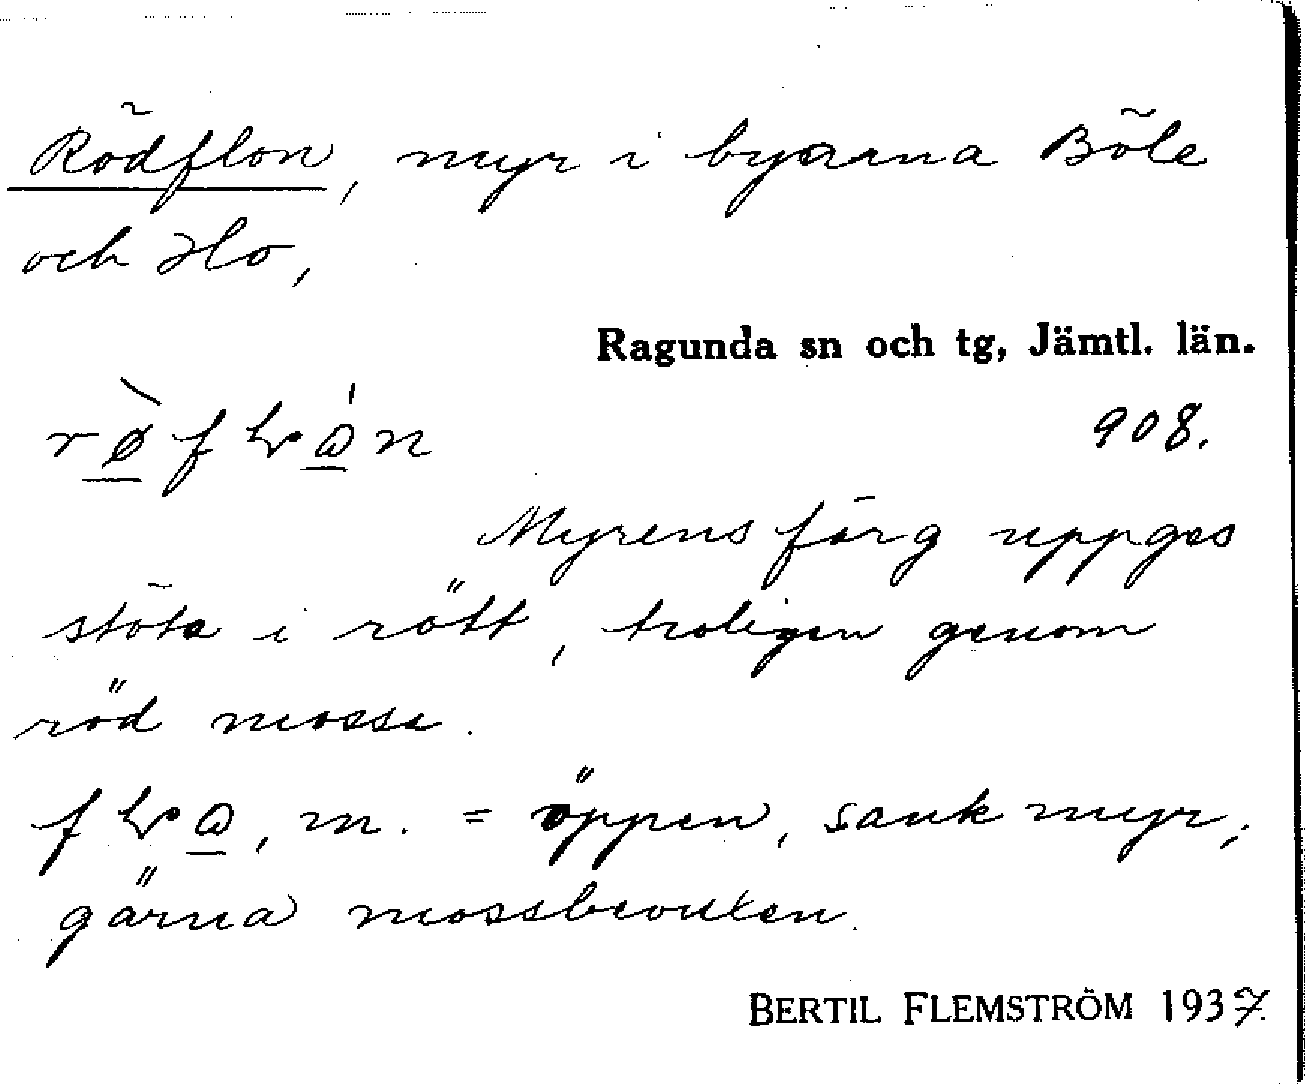 Rödflon, myr i byarna Böle
och Ho,
Ragunda sn och tg, Jämtl. län.
908.
Myrens färg uppges
stöta i rött, troligen genom
röd mossa.
m. = öppen, sank myr,
gärna mossbevuxen.
BERTIL FLEMSTRÖM 1937.